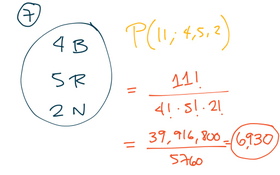 7
4 B
5 R
2 N
P(11; 4,5,2)
= 11! / 4! · 5! · 2!
= 39,916,800 / 5760 = 6,930